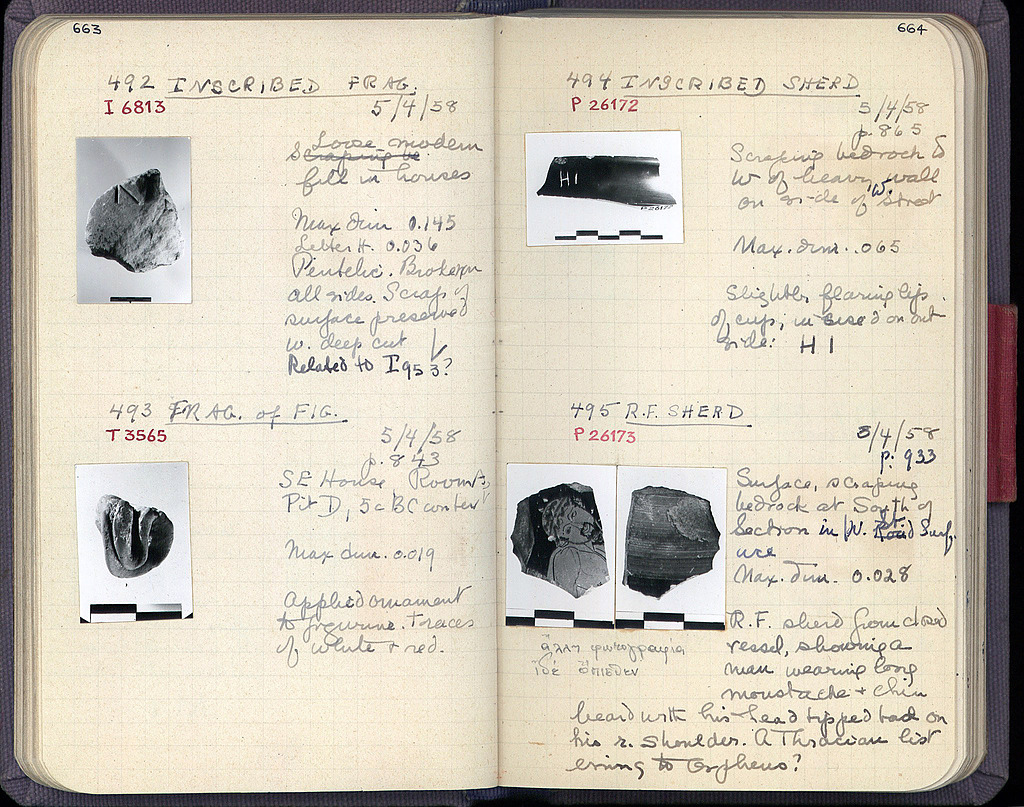 663
492 INSCRIBED FRAG.
I 6813
5/4/58
Loose modern
Scraping be
fill in houses
Max dim 0.145
Letter H. 0.036
Pentelic. Broken
all sides. Scrap of
surface preserved
w. deep cut
Related to I 953?
493 FRAG. of FIG.
T 3565
5/4/58
p. 843
SE House, Room
Pit D, 5c BC context
Max dim. 0.019
Applied ornament
to figurine. Traces
of white + red.
664
494 INSCRIBED SHERD
P 26172
5/4/58
p. 865
HI
P 26172
Scraping bedrock to
W of heavy wall
on W. side of Street
Max. dim. .065
Slightly flaring lip
of cup, incised on out
side: HI
495 R.F. SHERD
P 26173
5/4/58
p. 933
Surface, scraping
bedrock at South of
Section in W. Road St. Surf
ace
Max. dim. 0.028
R.F. sherd from closed
vessel, showing a
man wearing long
moustache + chin
beard with his head tipped back on
his r. shoulder. A Thracian list
ening to Orpheus?
ἄλλη φωτογραφία
ἰδὲ ὄπισθεν